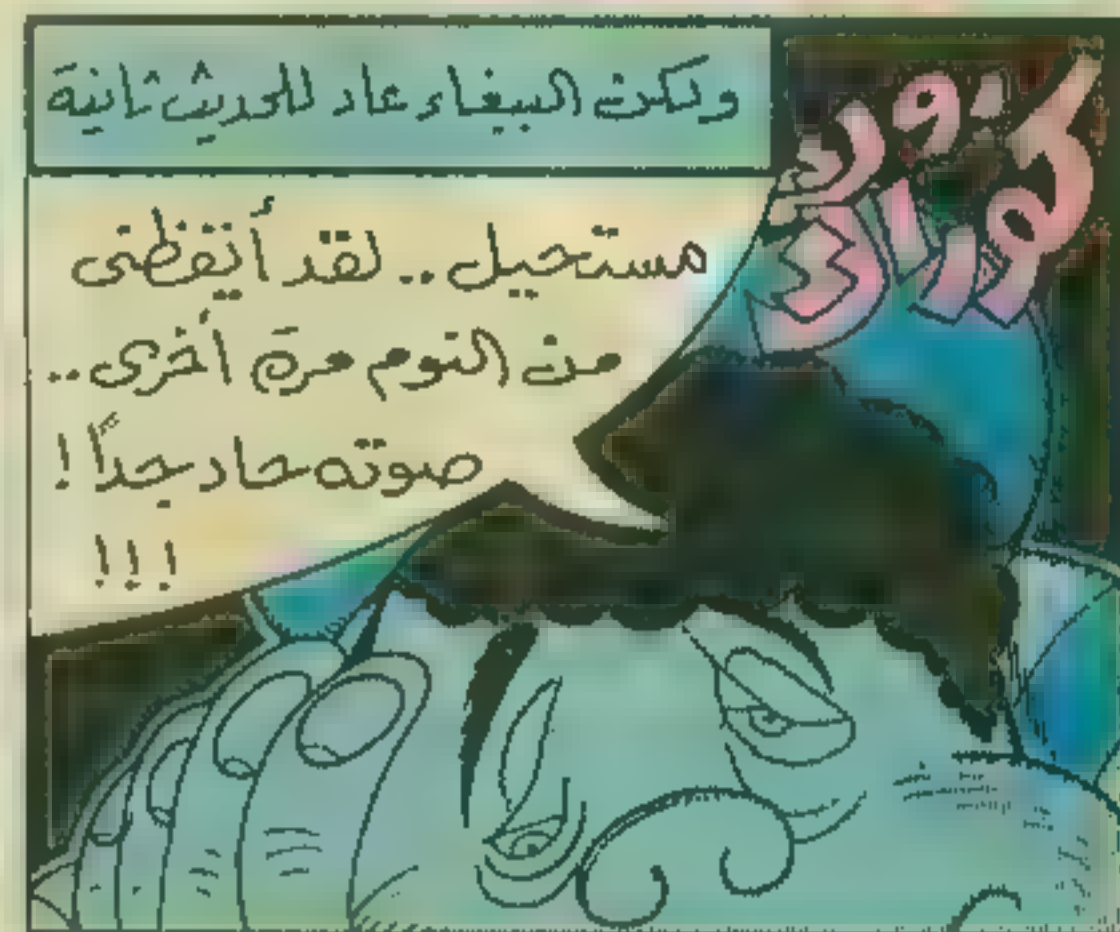 ولكن الببغاء عاد للحديث ثانية
مستحيل .. لقد أيقظني
من النوم مرة أخرى ..
صوته حاد جداً !
!!!